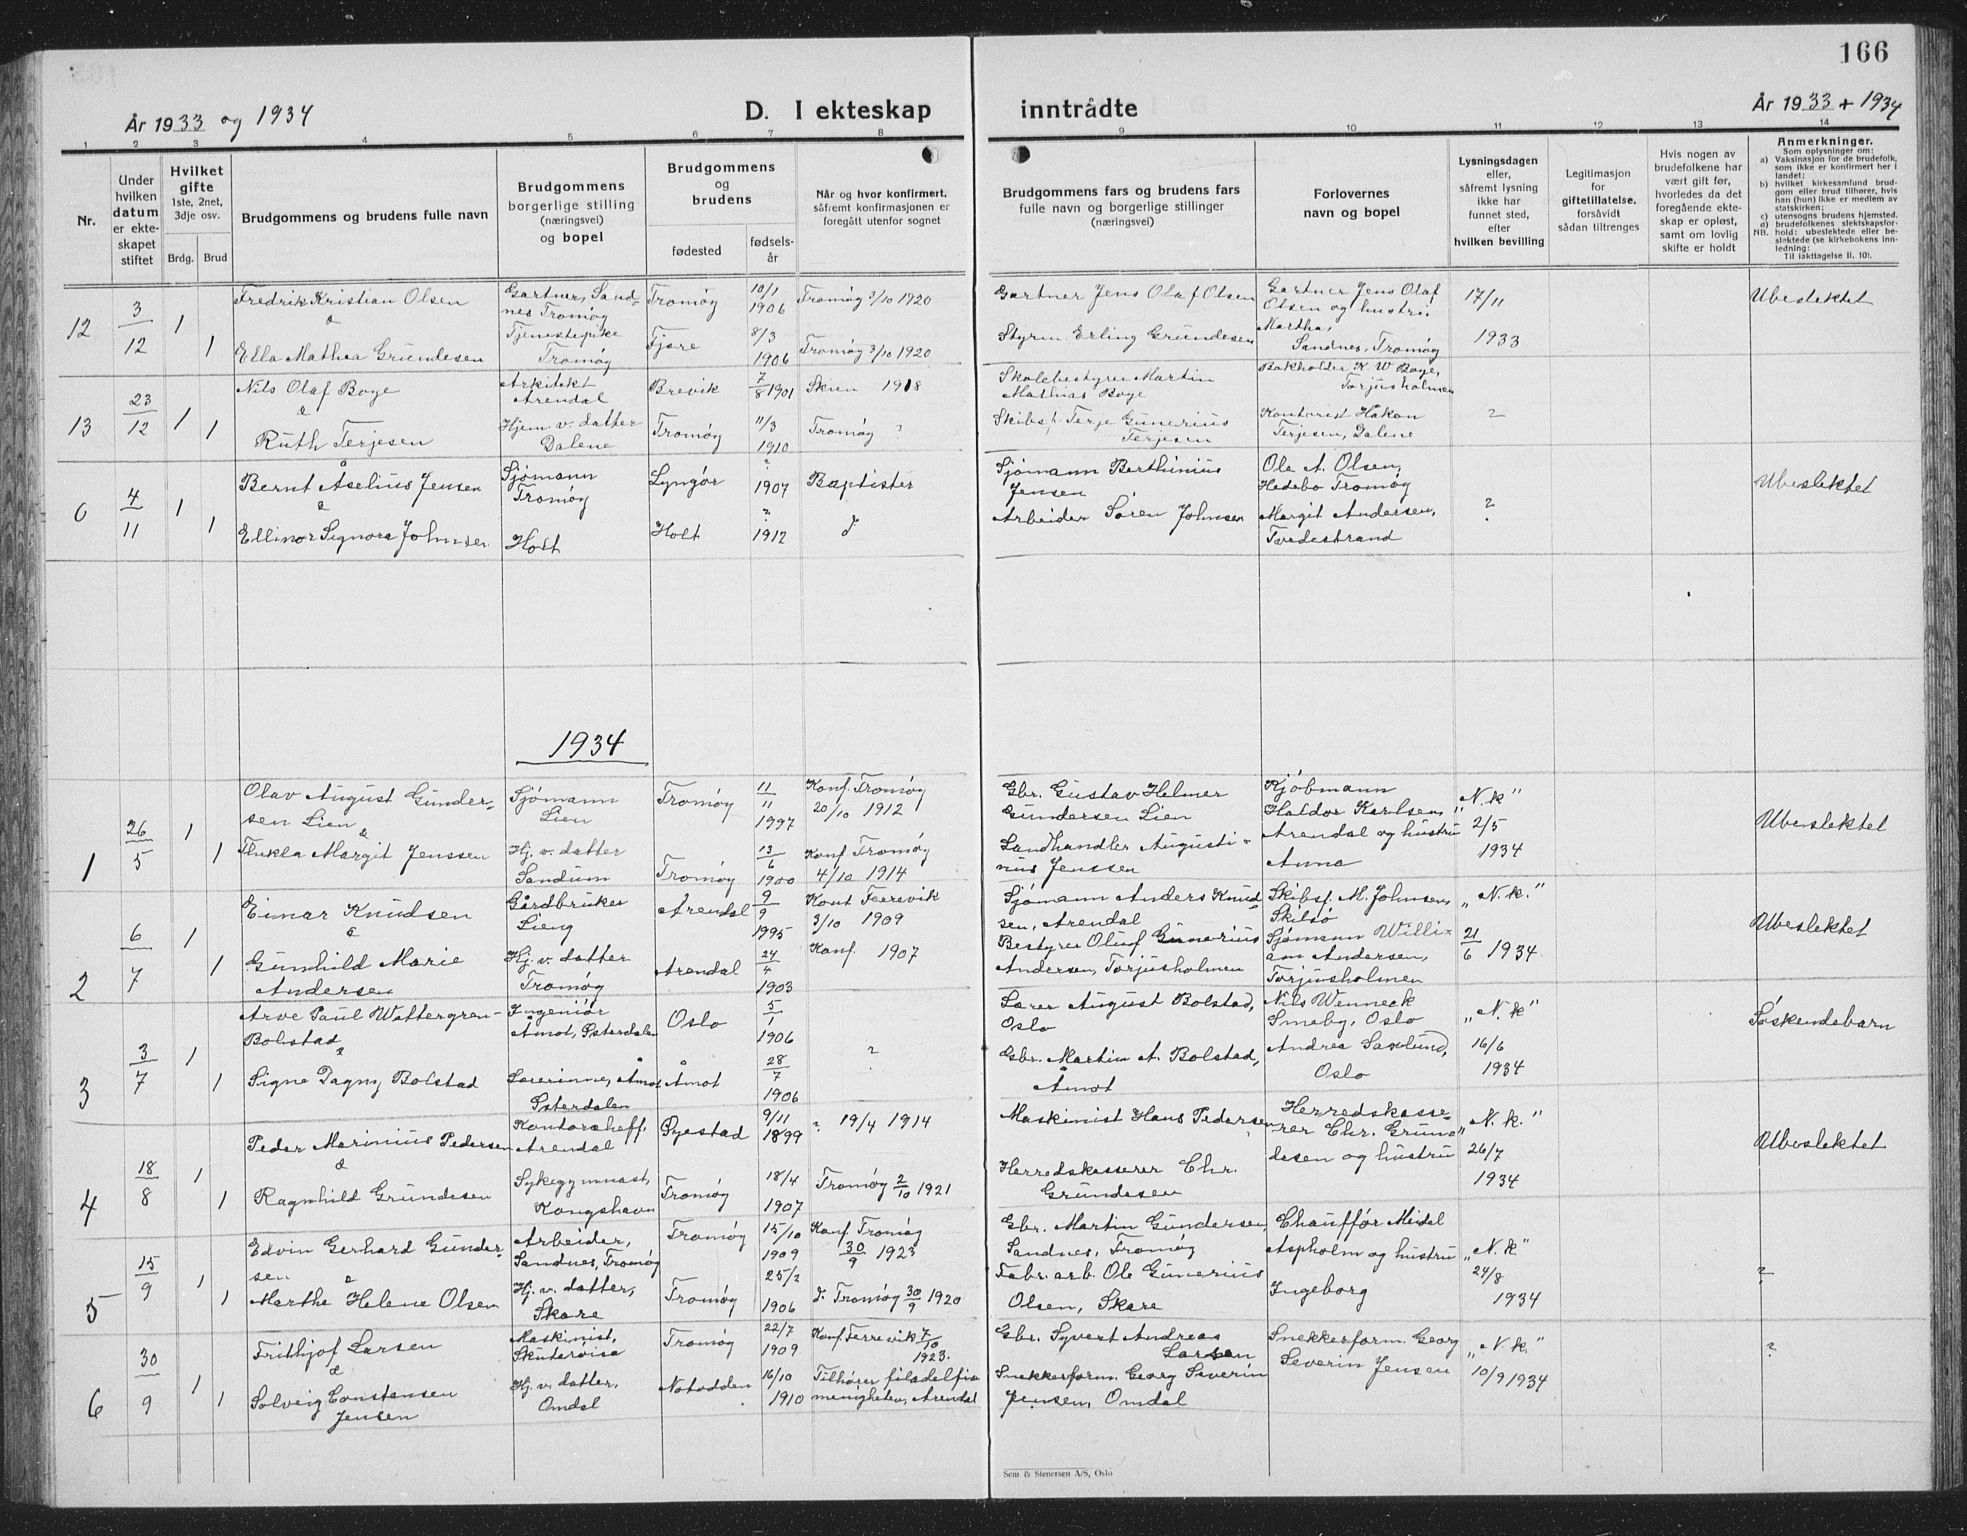 166
År 1933 og 1934
D. I ekteskap
inntrådte
År 1933 + 1934
1 2 3 4 5 6 7 8 9 10 11 12 13 14
Nr.
Under hvilken datum er ekteskapet stiftet
Hvilket gifte 1ste, 2net, 3dje osv.
Brdg. Brud
Brudgommens og brudens fulle navn
Brudgommens borgerlige stilling (næringsvei) og bopel
Brudgommens og brudens
fødested
fødsels-år
Når og hvor konfirmert, såfremt konfirmasjonen er foregått utenfor sognet
Brudgommens fars og brudens fars fulle navn og borgerlige stillinger (næringsvei)
Forlovernes navn og bopel
Lysningsdagen eller, såfremt lysning ikke har funnet sted, efter hvilken bevilling
Legitimasjon for giftetillatelse, forsåvidt sådan tiltrenges
Hvis nogen av brudefolkene har vært gift før, hvorledes da det foregående ekteskap er opløst, samt om lovlig skifte er holdt
Anmerkninger.
Som oplysninger om:
a) Vaksinasjon for de brudefolk, som ikke er konfirmert her i landet;
b) hvilket kirkesamfund brudgom eller brud tilhører, hvis han (hun) ikke er medlem av statskirken;
c) utensogns brudens hjemsted.
d) brudefolkenes slektskapsforhold: ubeslektede eller beslektede (se kirkebokens innledning:
NB.
Til iakttagelse II. 10).
12 3/12 1 Fredrik Kristian Olsen Gartner, Sandnes Tromøy Tromøy 10/1 1906 Tromøy 3/10 1920 Gartner Jens Olaf Olsen Gartner Jens Olaf Olsen og hustru Martha, Sandnes, Tromøy 17/11 1933 Ubeslektet
& 1 Ella Mathea Grundesen Tjenestepike Tromøy Fjære 8/3 1906 Tromøy 3/10 1920 Styrm. Erling Grundesen
13 23/12 1 Nils Olaf Boye Arkitekt Arendal Brevik 7/8 1901 Skien 1918 Skolebestyrer Martin Mathias Boye Bokholder K. W Boye, Torjusholmen ?
& 1 Ruth Terjesen Hjem v. datter Dalene Tromøy 11/3 1910 Tromøy ? Skibsf. Terje Gunerius Terjesen Kontorist Håkon Terjesen, Dalene
0 4/11 1 Bernt Åselius Jensen Sjømann Tromøy Lyngør ? 1907 Baptister Sjømann Berthinius Jensen Ole A. Olsen, Hedebo Tromøy ? Ubeslektet
& 1 Ellinor Signora Johnsen Holt Holt ? 1912 d Arbeider Søren Johnsen Margit Andersen, Tvedestrand
1934
1 26/5 1 Olav August Gundersen Lien Sjømann Lien Tromøy 11/11 1997 Konf. Tromøy 20/10 1912 Gbr. Gustav Helmer Gundersen Lien Kjøbmann Haldor Karlsen, Arendal og hustru Anna "N.k" 2/5 1934 Ubeslektet
& 1 Thekla Margit Jenssen Hj. v. datter Sandum Tromøy 13/6 1900 Konf. Tromøy 4/10 1914 Landhandler Augustinus Jenssen
2 6/7 1 Einar Knudsen Gårdbruker Lieng Arendal 9/9 1995 Konf Færevik 3/10 1909 Sjømann Anders Knudsen, Arendal Skibsf. M. Johnsen, Skilsø "N.k." 21/6 1934 Ubeslektet
& 1 Gunhild Marie Andersen Hj. v. datter Tromøy Arendal 24/4 1903 Konf. 1907 Bestyrer Oluf Gunerius Andersen, Torjusholmen Sjømann William Andersen, Torjusholmen
3 3/7 1 Arve Paul Wettergren-Bolstad Ingeniør Åmot, Østerdalen Oslo 5/1 1906 ? Lærer August Bolstad, Oslo Nils Wenneck Smeby, Oslo "N.k" 16/6 1934 Søskendebarn
& 1 Signe Dagny Bolstad Lærerinne, Åmot Østerdalen Åmot 28/7 1906 Gbr. Martin A. Bolstad, Åmot Andrea Saxlund, Oslo
4 18/8 1 Peder Marinius Pedersen Kontorsheff, Arendal Øyestad 9/11 1899 ? 19/4 1914 Maskinist Hans Pedersen Herredskasserer Chr. Grundesen og hustru "N.k." 26/7 1934 Ubeslektet
& 1 Ragnhild Grundesen Sykegymnast, Kongshavn Tromøy 18/4 1907 Tromøy 2/10 1921 Herredskasserer Chr. Grundesen
5 15/9 1 Edvin Gerhard Gundersen Arbeider, Sandnes, Tromøy Tromøy 15/10 1909 Konf. Tromøy 30/9 1923 Gbr. Martin Gundersen, Sandnes, Tromøy Chauffør Meidel Aspholm og hustru Ingeborg "N.k." 24/8 1934 ?
& 1 Marthe Helene Olsen Hj. v. datter, Skare Tromøy 25/2 1906 d. Tromøy 30/9 1920 Fabr. arb. Ole Gunerius Olsen, Skare
6 30/9 1 Frithjof Larsen Maskinist, Skuterviso Tromøy 22/7 1909 Konf. Færevik 7/10 1923. Gbr. Syvert Andreas Larsen Snekkerform. Georg Severin Jensen "N.k." 10/9 1934 ?
& 1 Solveig Constansen Jensen Hj. v. datter, Omdal Notodden 16/10 1910 Tilhører filadelfiamenigheten, Arendal Snekkerform. Georg Severin Jensen, Omdal
Sem & Stenersen A/S, Oslo